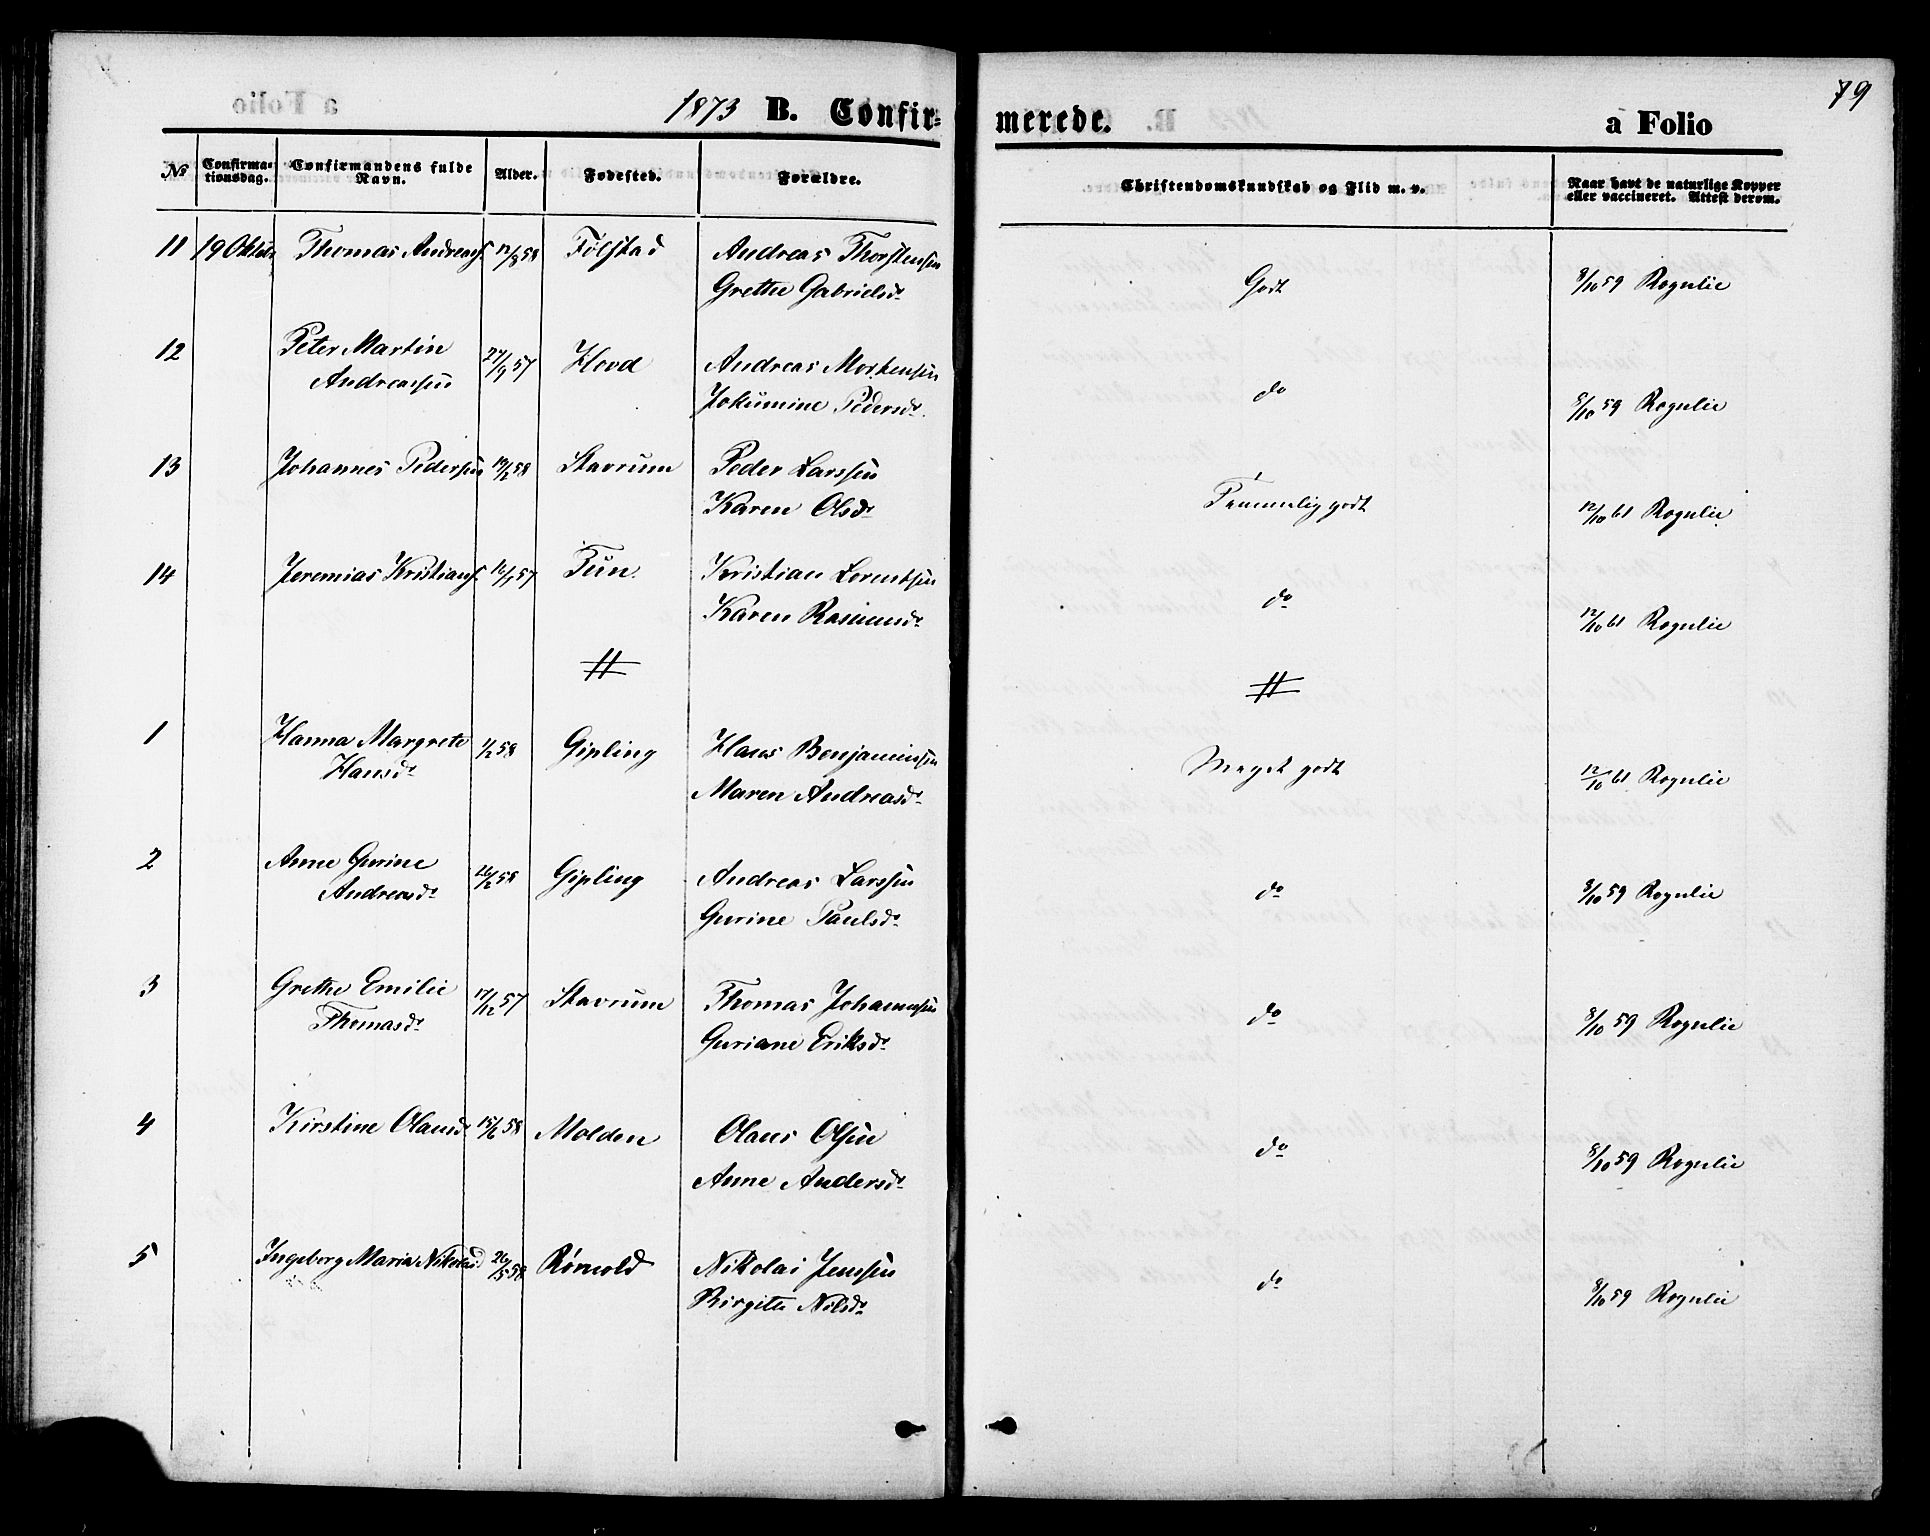 79
1873 B. Confirmerede. a Folio
No Confirmationsdag. Confirmandens fulde Navn. Alder. Fødested. Forældre. Christendomskundskab og Flid m. v. Naar havt de naturlige Kopper eller vaccineret. Attest derom.
11 19 Oktob. Thomas Andreas. 12/8 58 Følstad Andreas Thorstensen Godt 8/10 59 Rognlie
Grethe Gabrielsd.
12 Peter Martin 27/9 57 Hovd Andreas Mortensen do 8/10 59 Rognlie
Andreassen Jokumine Pedersd.
13 Johannes Pedersen 19/2 58 Stavrum Peder Larssen Temmelig godt 12/10 61 Rognlie
Karen Olsd.
14 Jeremias Kristians. 16/1 57 Tun Kristian Lorentsen do 12/10 61 Rognlie
Karen Rasmusd.
1 Hanna Margrete 1/2 58 Gipling Hans Benjaminsen Meget godt 12/10 61 Rognlie
Hansd. Maren Andreasd.
2 Anne Gurine 26/2 58 Gipling Andreas Larssen do 8/10 59 Rognlie
Andreasd. Gurine Paulsd.
3 Grethe Emilie 17/12 57 Stavrum Thomas Johannsen do 8/10 59 Rognlie
Thomasd. Guriane Eriksd.
4 Kirstine Olausd. 15/6 58 Molden Olaus Olsen do 8/10 59 Rognlie
Anne Andersd.
5 Ingeborg Maria Nikolaid 26/5 58 Rømold Nikolai Jensen do 8/10 59 Rognlie
Birgitte Nilsd.